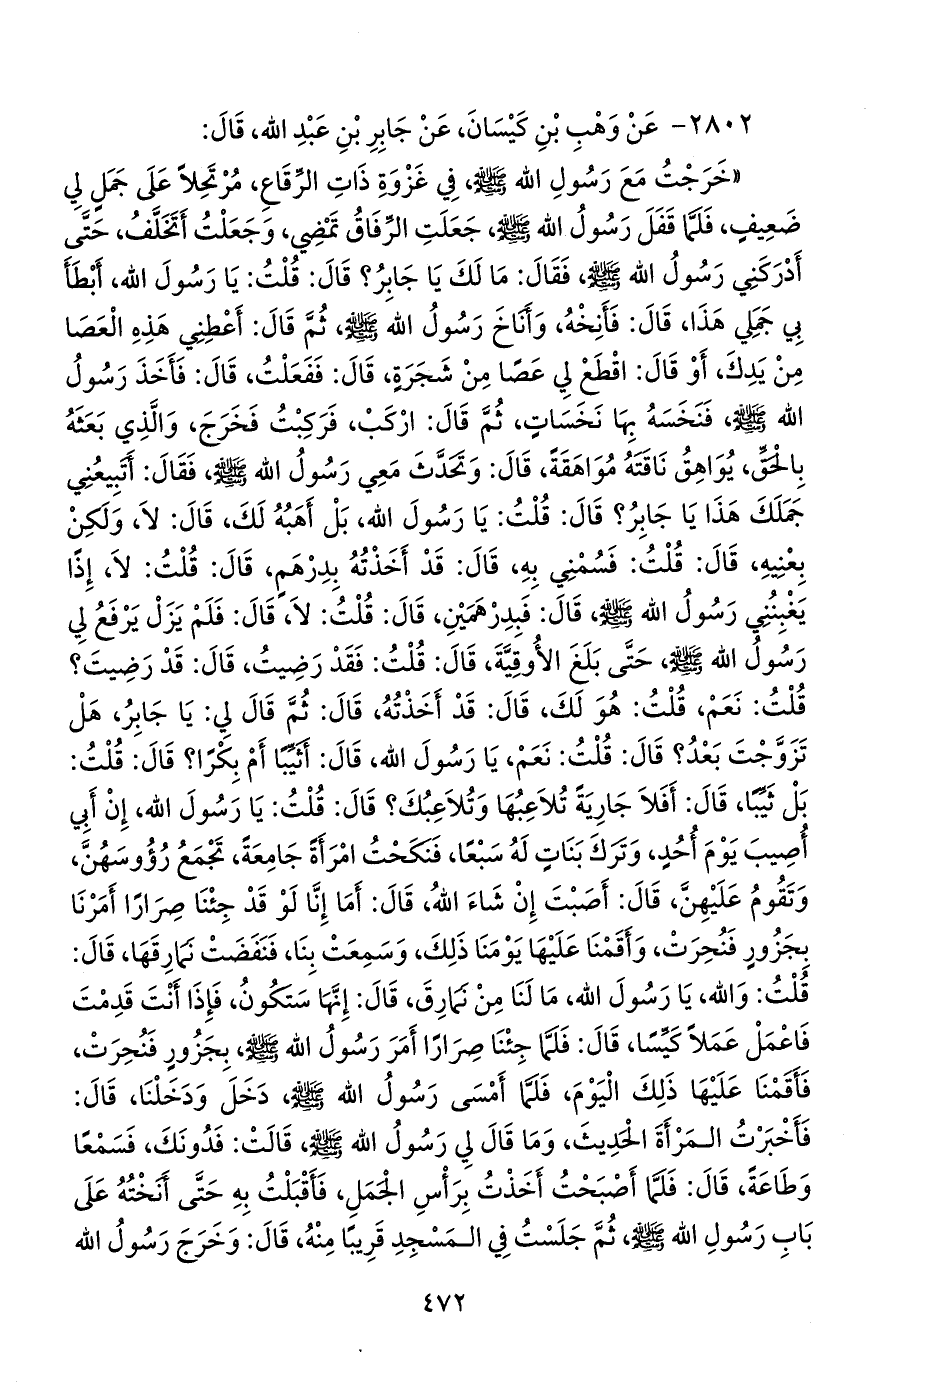 ٢٨٠٢- عَنْ وَهْبِ بْنِ كَيْسَانَ، عَنْ جَابِرِ بْنِ عَبْدِ الله، قَالَ:
«خَرَجْتُ مَعَ رَسُولِ الله ﷺ، فِي غَزْوَةِ ذَاتِ الرِّقَاعِ، مُرْتَحِلاً عَلَى جَمَلٍ لِي
ضَعِيفٍ، فَلَمَّا قَفَلَ رَسُولُ الله ﷺ، جَعَلَتِ الرِّفَاقُ تَمْضِي، وَجَعَلْتُ أَتَخَلَّفُ، حَتَّى
أَدْرَكَنِي رَسُولُ الله ﷺ، فَقَالَ: مَا لَكَ يَا جَابِرُ؟ قَالَ: قُلْتُ: يَا رَسُولَ الله، أَبْطَأَ
بِي جَمَلِي هَذَا، قَالَ: فَأَنِخْهُ، وَأَنَاخَ رَسُولُ الله ﷺ، ثُمَّ قَالَ: أَعْطِنِي هَذِهِ الْعَصَا
مِنْ يَدِكَ، أَوْ قَالَ: اقْطَعْ لِي عَصًا مِنْ شَجَرَةٍ، قَالَ: فَفَعَلْتُ، قَالَ: فَأَخَذَ رَسُولُ
الله ﷺ، فَنَخَسَهُ بِهَا نَخَسَاتٍ، ثُمَّ قَالَ: ارْكَبْ، فَرَكِبْتُ فَخَرَجَ، وَالَّذِي بَعَثَهُ
بِالْحَقِّ، يُوَاهِقُ نَاقَتَهُ مُوَاهَقَةً، قَالَ: وَتَحَدَّثَ مَعِي رَسُولُ الله ﷺ، فَقَالَ: أَتَبِيعُنِي
جَمَلَكَ هَذَا يَا جَابِرُ؟ قَالَ: قُلْتُ: يَا رَسُولَ الله، بَلْ أَهَبُهُ لَكَ، قَالَ: لاَ، وَلَكِنْ
بِعْنِيهِ، قَالَ: قُلْتُ: فَسُمْنِي بِهِ، قَالَ: قَدْ أَخَذْتُهُ بِدِرْهَمٍ، قَالَ: قُلْتُ: لاَ، إِذًا
يَغْبِنُنِي رَسُولُ الله ﷺ، قَالَ: فَبِدِرْهَمَيْنِ، قَالَ: قُلْتُ: لاَ، قَالَ: فَلَمْ يَزَلْ يَرْفَعُ لِي
رَسُولُ الله ﷺ، حَتَّى بَلَغَ الأُوقِيَّةَ، قَالَ: قُلْتُ: فَقَدْ رَضِيتُ، قَالَ: قَدْ رَضِيتَ؟
قُلْتُ: نَعَمْ، قُلْتُ: هُوَ لَكَ، قَالَ: قَدْ أَخَذْتُهُ، قَالَ: ثُمَّ قَالَ لِي: يَا جَابِرُ، هَلْ
تَزَوَّجْتَ بَعْدُ؟ قَالَ: قُلْتُ: نَعَمْ، يَا رَسُولَ الله، قَالَ: أَثَيِّبًا أَمْ بِكْرًا؟ قَالَ: قُلْتُ:
بَلْ ثَيِّبًا، قَالَ: أَفَلاَ جَارِيَةً تُلاَعِبُهَا وَتُلاَعِبُكَ؟ قَالَ: قُلْتُ: يَا رَسُولَ الله، إِنْ أَبِي
أُصِيبَ يَوْمَ أُحُدٍ، وَتَرَكَ بَنَاتٍ لَهُ سَبْعًا، فَنَكَحْتُ امْرَأَةً جَامِعَةً، تَجْمَعُ رُؤُوسَهُنَّ،
وَتَقُومُ عَلَيْهِنَّ، قَالَ: أَصَبْتَ إِنْ شَاءَ اللهُ، قَالَ: أَمَا إِنَّا لَوْ قَدْ جِئْنَا صِرَارًا أَمَرْنَا
بِجَزُورٍ فَنُحِرَتْ، وَأَقَمْنَا عَلَيْهَا يَوْمَنَا ذَلِكَ، وَسَمِعَتْ بِنَا، فَنَفَضَتْ نَمَارِقَهَا، قَالَ:
قُلْتُ: وَالله، يَا رَسُولَ الله، مَا لَنَا مِنْ نَمَارِقَ، قَالَ: إِنَّهَا سَتَكُونُ، فَإِذَا أَنْتَ قَدِمْتَ
فَاعْمَلْ عَمَلاً كَيِّسًا، قَالَ: فَلَمَّا جِئْنَا صِرَارًا أَمَرَ رَسُولُ الله ﷺ، بِجَزُورٍ فَنُحِرَتْ،
فَأَقَمْنَا عَلَيْهَا ذَلِكَ الْيَوْمَ، فَلَمَّا أَمْسَى رَسُولُ الله ﷺ، دَخَلَ وَدَخَلْنَا، قَالَ:
فَأَخْبَرْتُ الْمَرْأَةَ الْحَدِيثَ، وَمَا قَالَ لِي رَسُولُ الله ﷺ، قَالَتْ: فَدُونَكَ، فَسَمْعًا
وَطَاعَةً، قَالَ: فَلَمَّا أَصْبَحْتُ أَخَذْتُ بِرَأْسِ الْجَمَلِ، فَأَقْبَلْتُ بِهِ حَتَّى أَنَخْتُهُ عَلَى
بَابِ رَسُولِ الله ﷺ، ثُمَّ جَلَسْتُ فِي الْمَسْجِدِ قَرِيبًا مِنْهُ، قَالَ: وَخَرَجَ رَسُولُ الله
٤٧٢